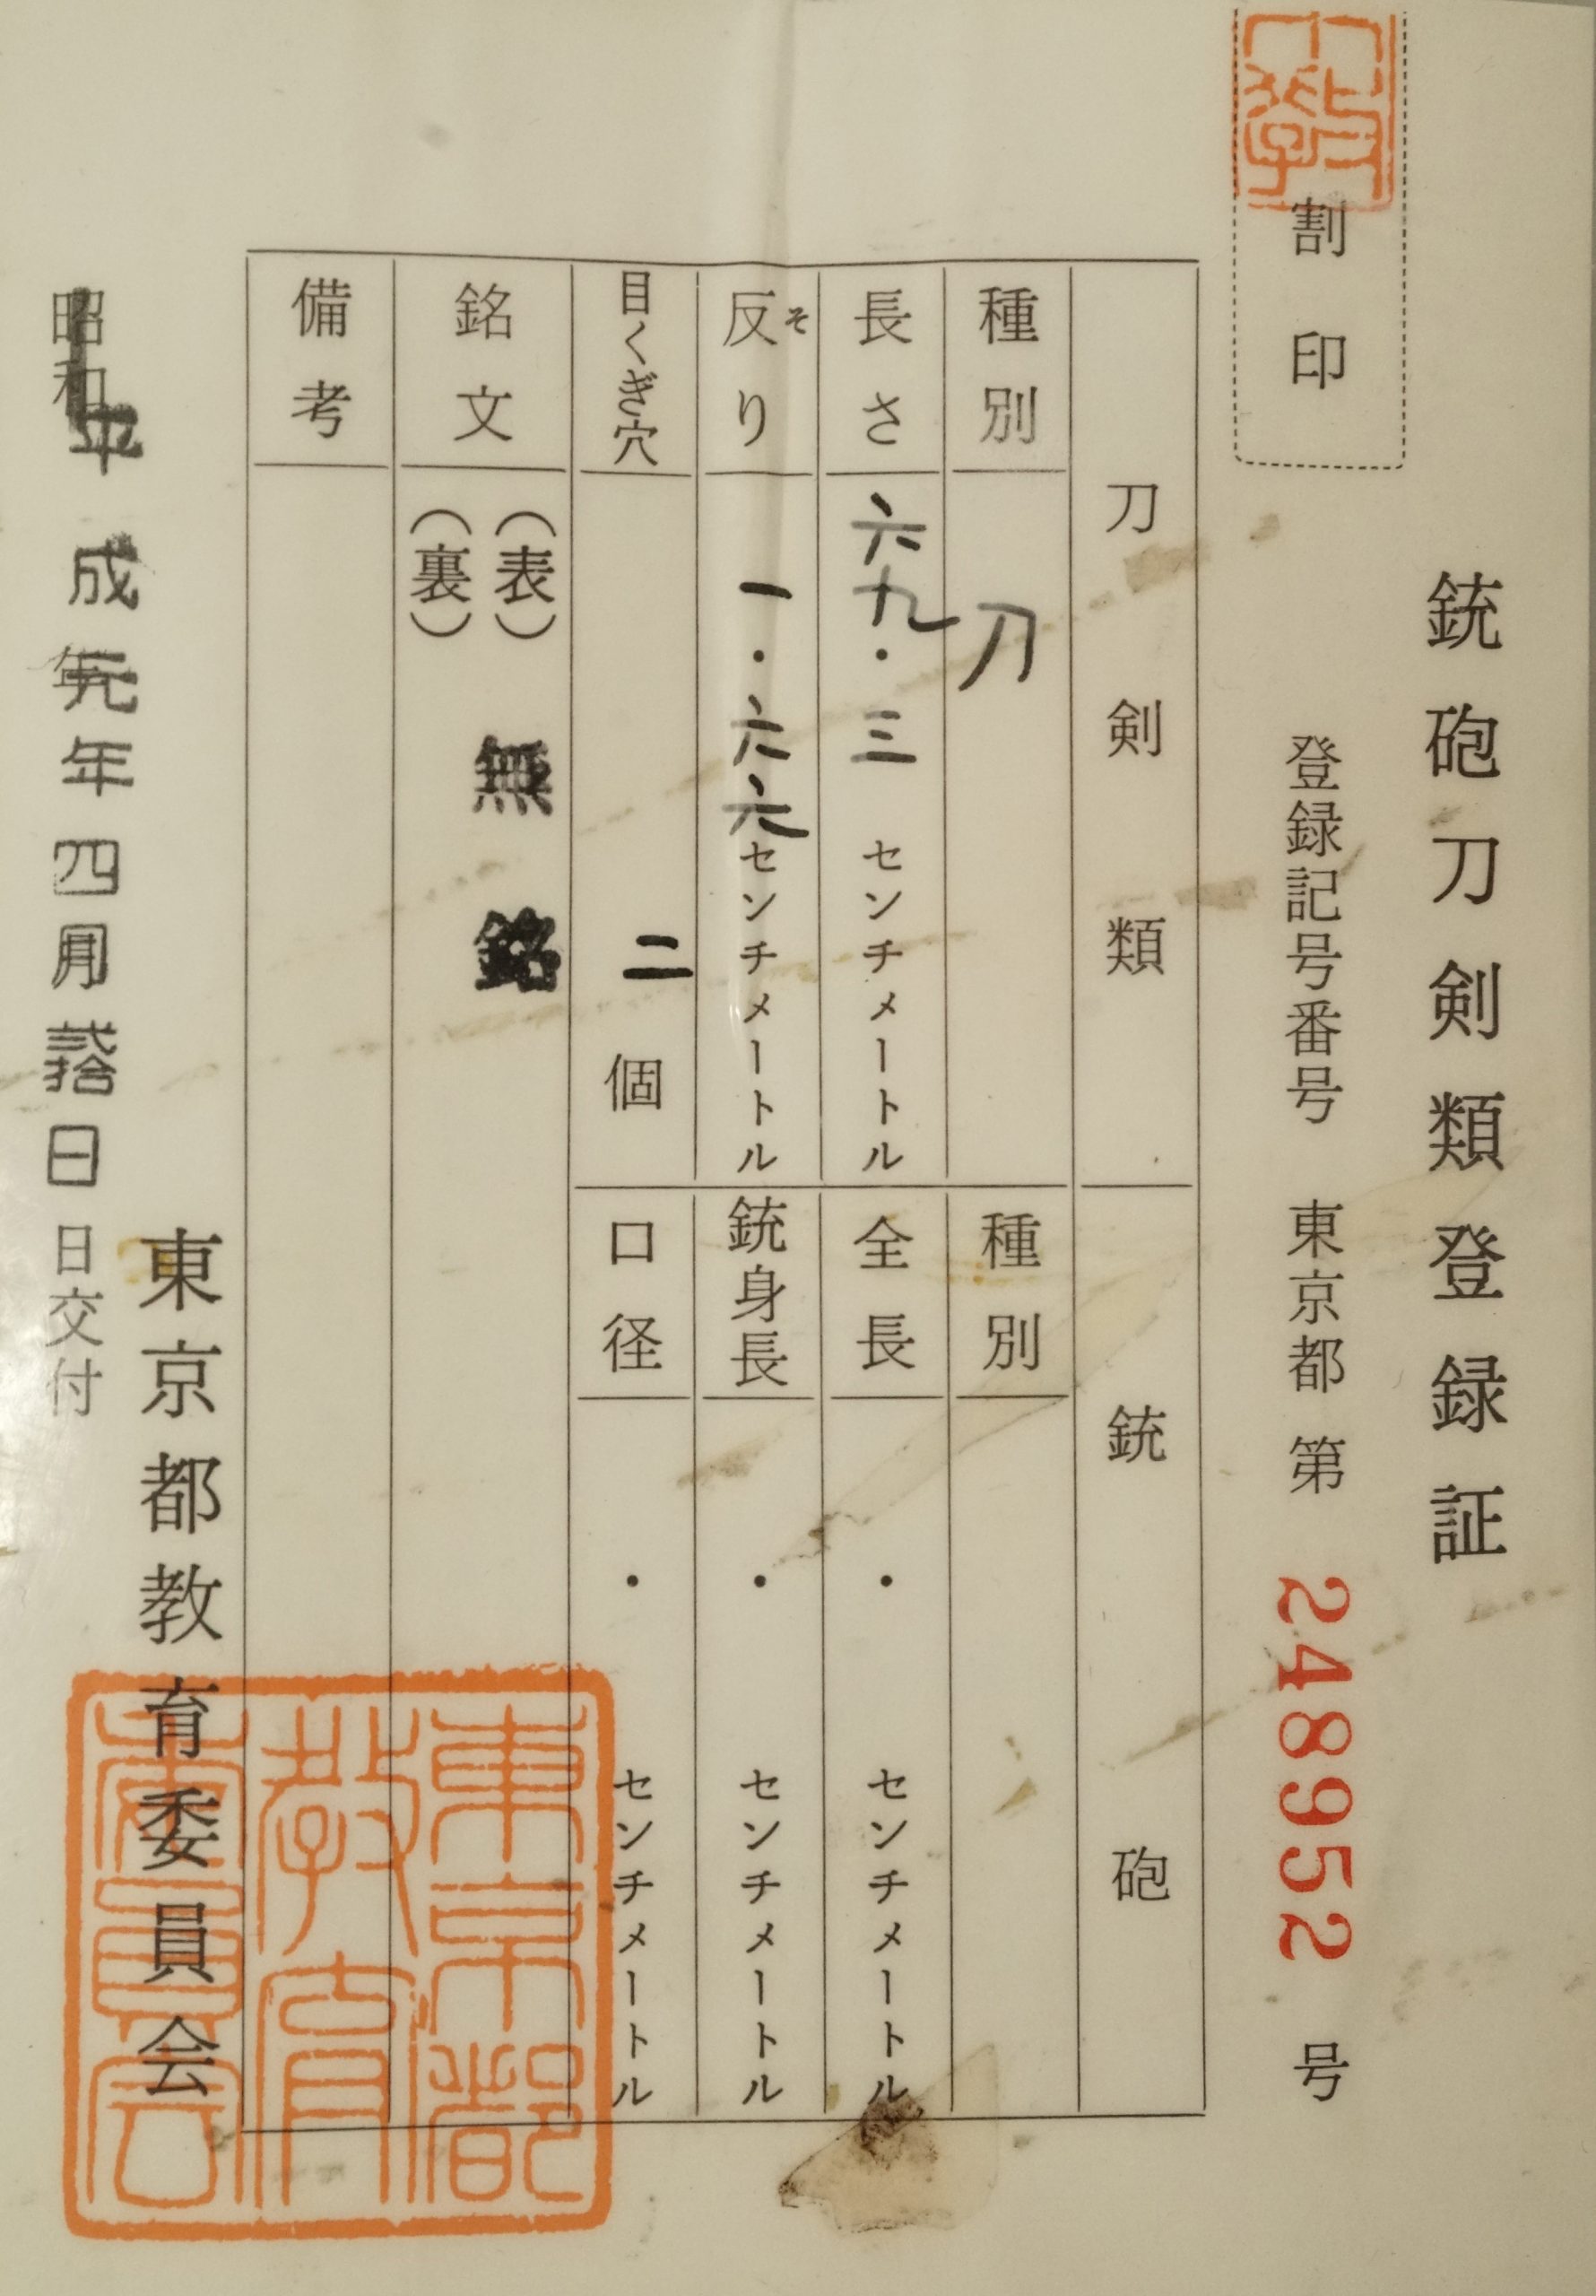 銃砲刀剣類登録証
割印
登録記号番号 東京都 第 248952 号
刀剣類
銃砲
種別 刀
種別
長さ 六九・三 センチメートル
全長 ・ センチメートル
反り そ 一・六六 センチメートル
銃身長 ・ センチメートル
目くぎ穴 二 個
口径 ・ センチメートル
銘文 (表) 無銘
(裏)
備考
東京都教育委員会
昭和 平成元年四月弐拾日 日交付
東京都
教育
委員会